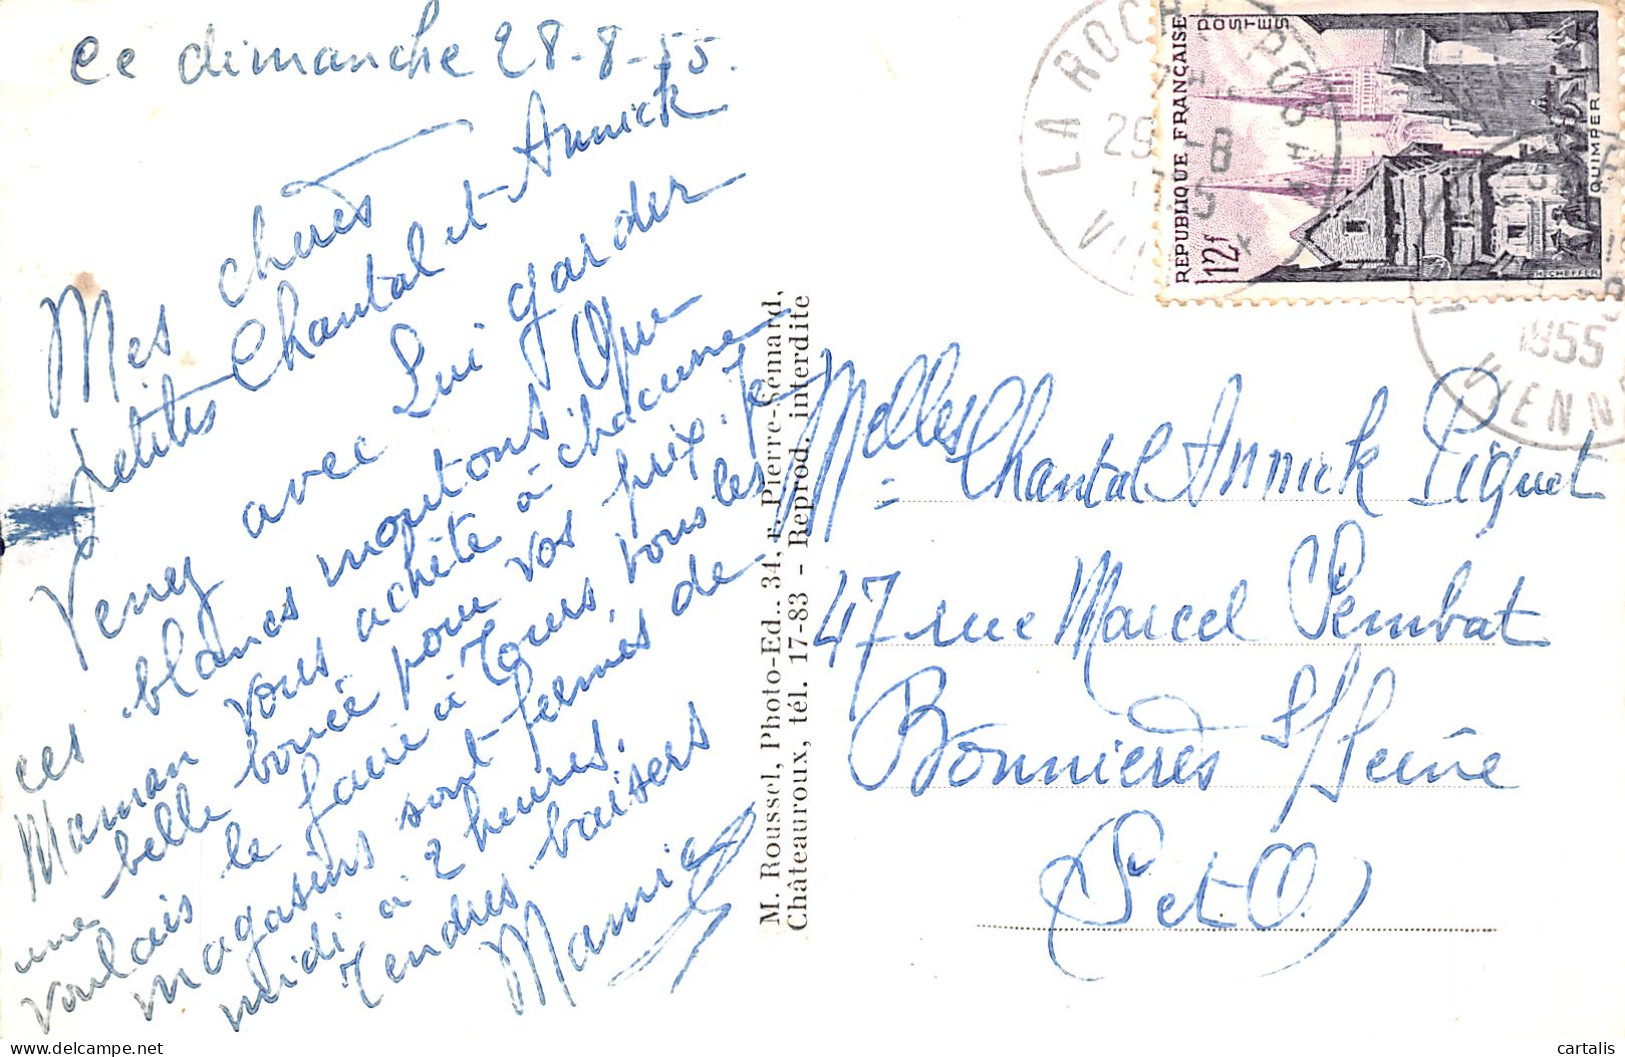 ce dimanche 28-8-55.
Mes chères
petites Chantal et Annick
Venez avec Lui garder
ces blancs moutons Que
Maman vous achète à chacune
une belle bouée pour vos prix. Je
voulais le faire à Tours, tous les
magasins sont fermés de
midi à 2 heures.
Tendres baisers
Mamie
M. Roussel, Photo-Ed.. 34, r. Pierre-Gémard,
Châteauroux, tél. 17-83 - Reprod. interdite
RÉPUBLIQUE FRANÇAISE
POSTES
12f
QUIMPER
H. CHEFFER
LA ROCHE POSAY
29 -8
VIENNE
1955
VIENNE
Melles Chantal Annick Piquet
47 rue Marcel Pembat
Bonnières s/Seine
(S et O)
cartalis